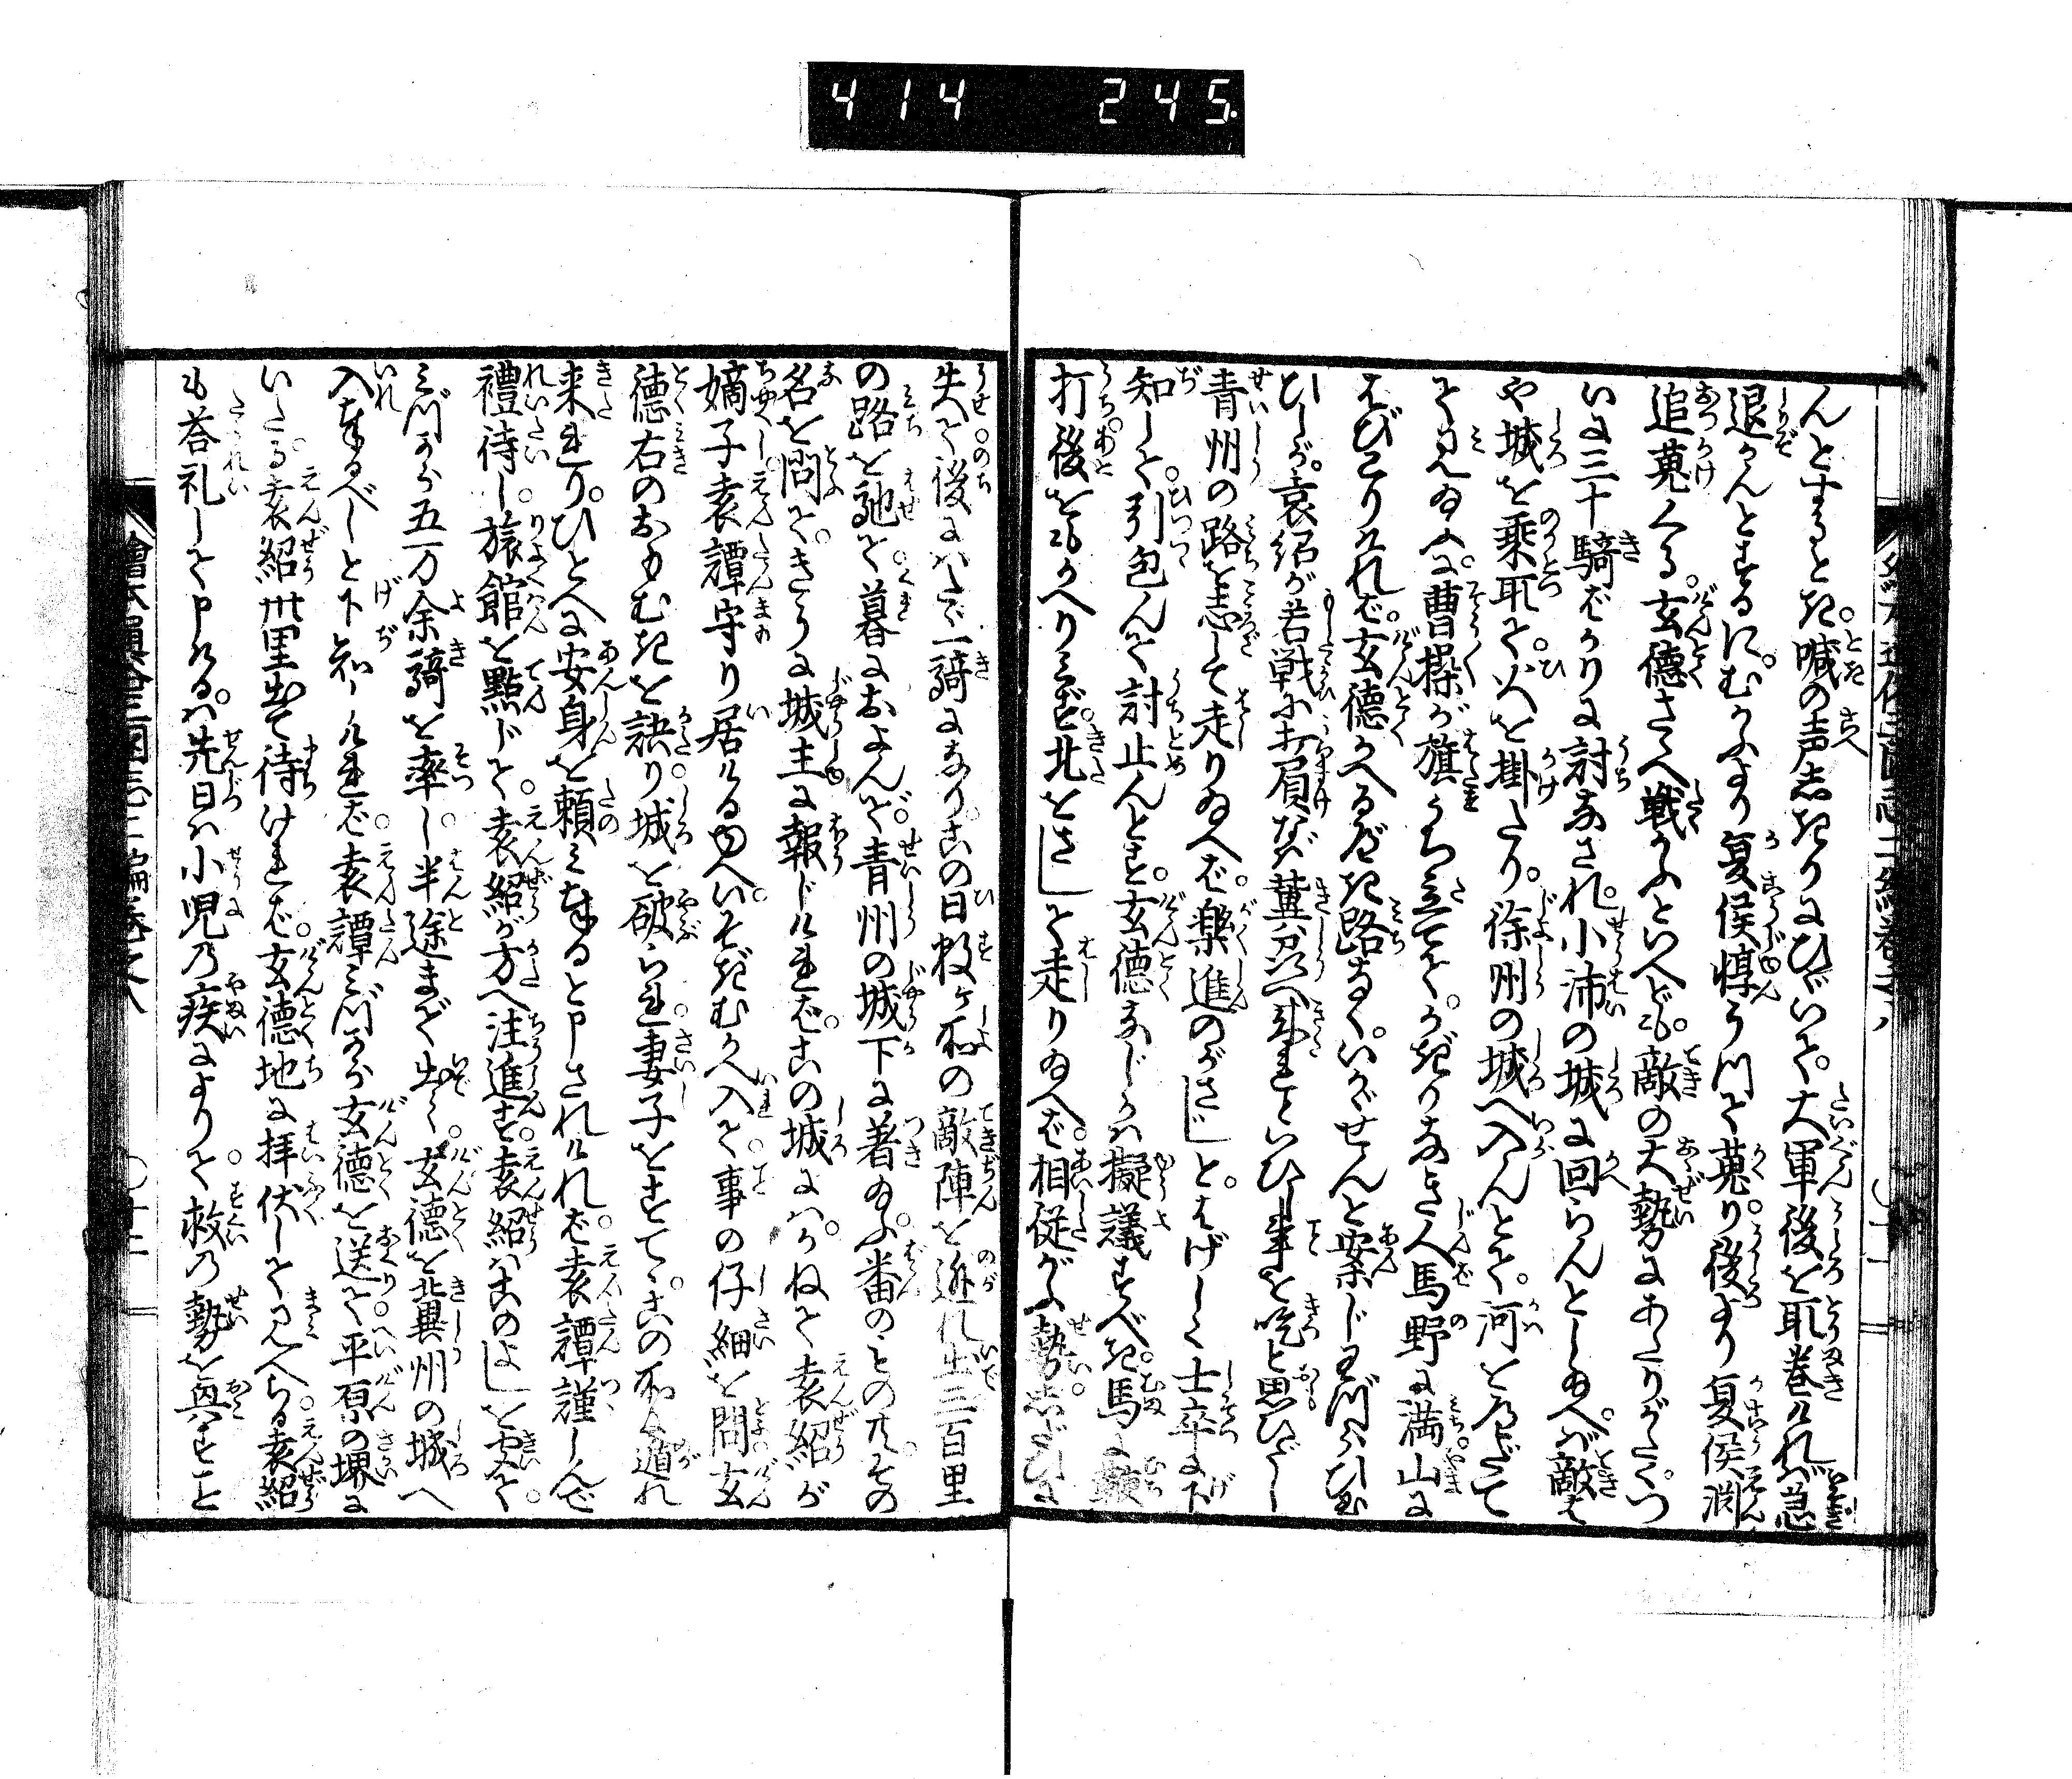 414 245
んとするとき。喊の声しきりにひゞいて。大軍後を取巻ければ急
退かんとするに。むかふより夏侯惇うつて蒐り。後より夏侯淵
追蒐くる。玄德さへ戦かふといへども。敵の大勢にあたりがたく。つ
いに三十騎ばかりに討なされ。小沛の城に回らんとし給へば。敵は
や城を乗取て。火を掛たり。徐州の城へ入んとて。河をへだて
て見給ふに。曹操が旗うち立て。かぎりなき人馬野に満山に
はびこりければ。玄德かへるべき路なく。いかゞせんと案じわづらひ給
ひしが。袁紹が若戦に打負なば。冀州へ来れといひし事を吃と思ひだし
青州の路を志して走り給へば。樂進のがさじと。はげしく士卒に下
知して。引包んで討止んとす。玄德なじかは擬議すべき。馬に鞭
打。後をもかへりみず。北をさして走り給へば。相従がふ勢しだひに
失て。後にはたゞ一騎になり。この日数ヶ所の敵陣を遁れ出三百里
の路を馳て。暮におよんで。青州の城下に著給ふ。番のもの其
名を問て。さうさうに城主に報じければ。この城には。かねて袁紹が
嫡子袁譚守り居けるゆへ。いそぎむかへ入て。事の仔細を問。玄
德右のおもむきを語り。城を破られ。妻子をすて。この所へ遁れ
来れり。ひとへに安身を頼み奉ると申されければ。袁譚謹しんで
禮待し。旅館を點じて。袁紹が方へ注進す。袁紹はこのよしを聞て。
みづから五万余騎を率し。半途まで出て。玄德を冀州の城へ
入奉るべしと下知しければ。袁譚みづから玄德を送て。平原の堺に
いたる。袁紹卅里出て待ければ。玄德地に拝伏してまみへらる。袁紹
も荅礼して申けるは。先日は小児の疾によりて。救の勢を與すこと
繪本通俗三國志二編巻之八